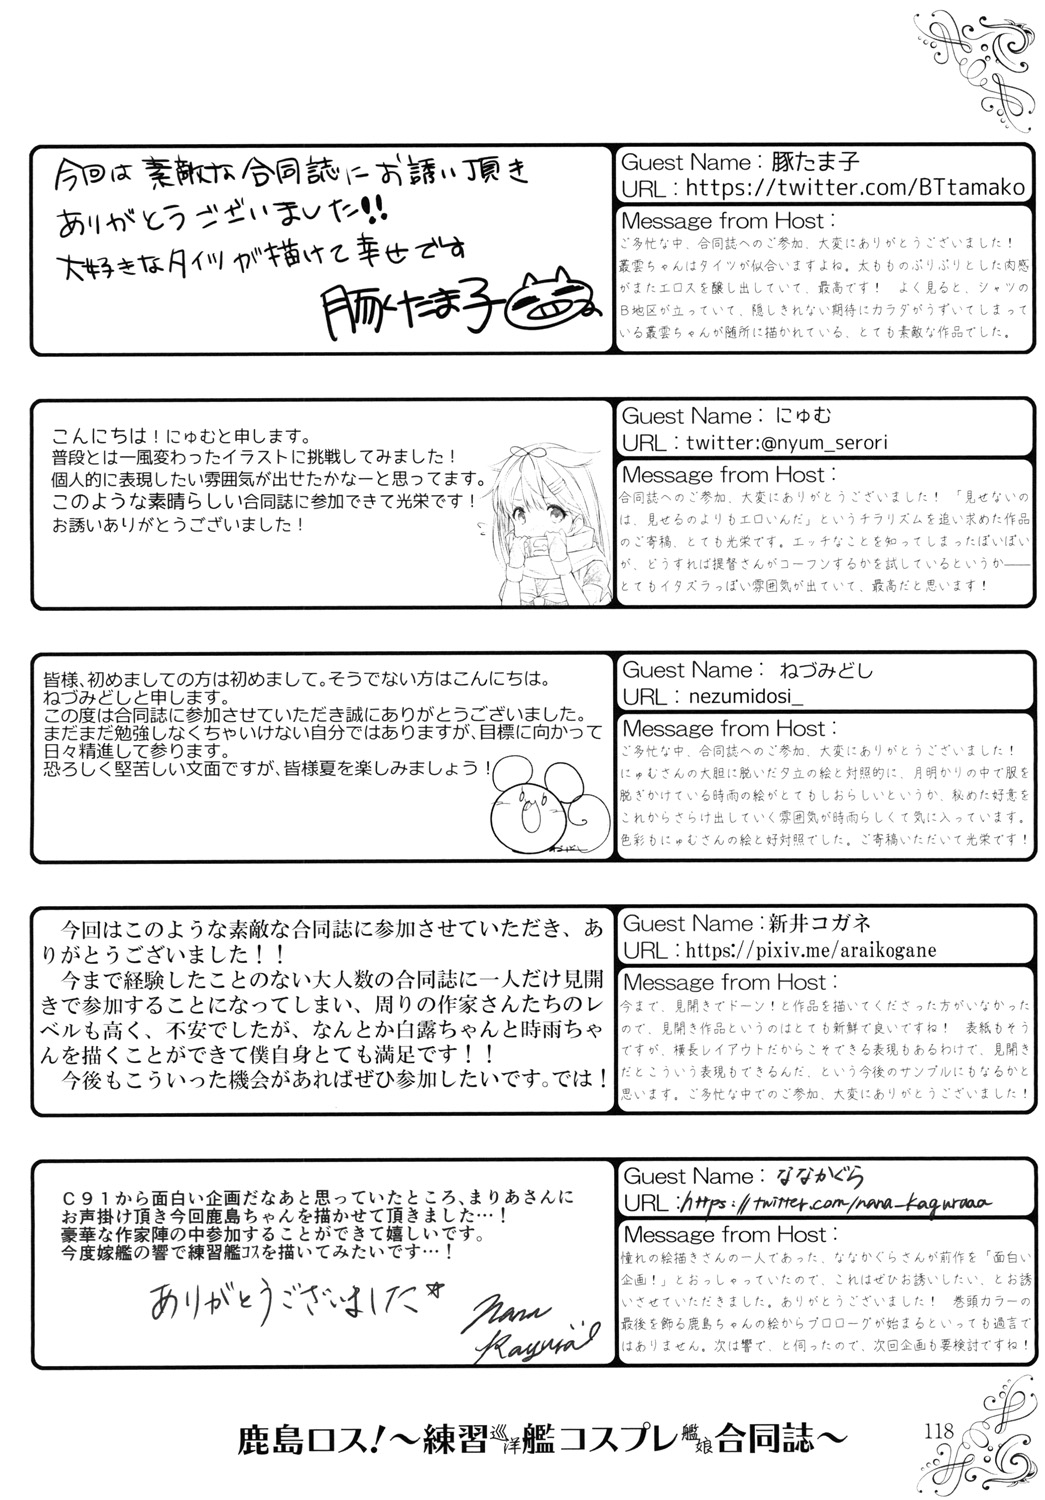 今回は素敵な合同誌にお誘い頂き
ありがとうございました!!
大好きなタイツが描けて幸せです
豚たま子
Guest Name：豚たま子
URL：https://twitter.com/BTtamako
Message from Host：
ご多忙な中、合同誌へのご参加、大変にありがとうございました！
叢雲ちゃんはタイツが似合いますよね。太もものぷりぷりとした肉感
がまたエロスを醸し出していて、最高です！　よく見ると、シャツの
B地区が立っていて、隠しきれない期待にカラダがうずいてしまって
いる叢雲ちゃんが随所に描かれている、とても素敵な作品でした。
こんにちは！にゅむと申します。
普段とは一風変わったイラストに挑戦してみました！
個人的に表現したい雰囲気が出せたかなーと思ってます。
このような素晴らしい合同誌に参加できて光栄です！
お誘いありがとうございました！
Guest Name：にゅむ
URL：twitter:@nyum_serori
Message from Host：
合同誌へのご参加、大変にありがとうございました！「見せないの
は、見せるのよりもエロいんだ」というチラリズムを追い求めた作品
のご寄稿、とても光栄です。エッチなことを知ってしまったぽいぽい
が、どうすれば提督さんがコーフンするかを試しているというか――
とてもイタズラっぽい雰囲気が出ていて、最高だと思います！
皆様、初めましての方は初めまして。そうでない方はこんにちは。
ねづみどしと申します。
この度は合同誌に参加させていただき誠にありがとうございました。
まだまだ勉強しなくちゃいけない自分ではありますが、目標に向かって
日々精進して参ります。
恐ろしく堅苦しい文面ですが、皆様夏を楽しみましょう！
ねづみどし
Guest Name：ねづみどし
URL：nezumidosi_
Message from Host：
ご多忙な中、合同誌へのご参加、大変にありがとうございました！
にゅむさんの大胆に脱いだ夕立の絵と対照的に、月明かりの中で服を
脱ぎかけている時雨の絵がとてもしおらしいというか、秘めた好意を
これからさらけ出していく雰囲気が時雨らしくて気に入っています。
色彩もにゅむさんの絵と好対照でした。ご寄稿いただいて光栄です！
今回はこのような素敵な合同誌に参加させていただき、あ
りがとうございました！！
今まで経験したことのない大人数の合同誌に一人だけ見開
きで参加することになってしまい、周りの作家さんたちのレ
ベルも高く、不安でしたが、なんとか白露ちゃんと時雨ちゃ
んを描くことができて僕自身とても満足です！！
今後もこういった機会があればぜひ参加したいです。では！
Guest Name：新井コガネ
URL：https://pixiv.me/araikogane
Message from Host：
今まで、見開きでドーン！と作品を描いてくださった方がいなかった
ので、見開き作品というのはとても新鮮で良いですね！　表紙もそう
ですが、横長レイアウトだからこそできる表現もあるわけで、見開き
だとこういう表現もできるんだ、という今後のサンプルにもなるかと
思います。ご多忙な中でのご参加、大変にありがとうございました！
Ｃ９１から面白い企画だなあと思っていたところ、まりあさんに
お声掛け頂き今回鹿島ちゃんを描かせて頂きました…！
豪華な作家陣の中参加することができて嬉しいです。
今度嫁艦の響で練習艦ｺｽを描いてみたいです…！
ありがとうございました☆
Nana
Kagura
Guest Name：ななかぐら
URL：https://twitter.com/nana_kaguraaa
Message from Host：
憧れの絵描きさんの一人であった、ななかぐらさんが前作を「面白い
企画！」とおっしゃっていたので、これはぜひお誘いしたい、とお誘
いさせていただきました。ありがとうございました！　巻頭カラーの
最後を飾る鹿島ちゃんの絵からプロローグが始まるといっても過言で
はありません。次は響で、と伺ったので、次回企画も要検討ですね！
鹿島ロス！～練習巡洋艦コスプレ艦娘合同誌～
118